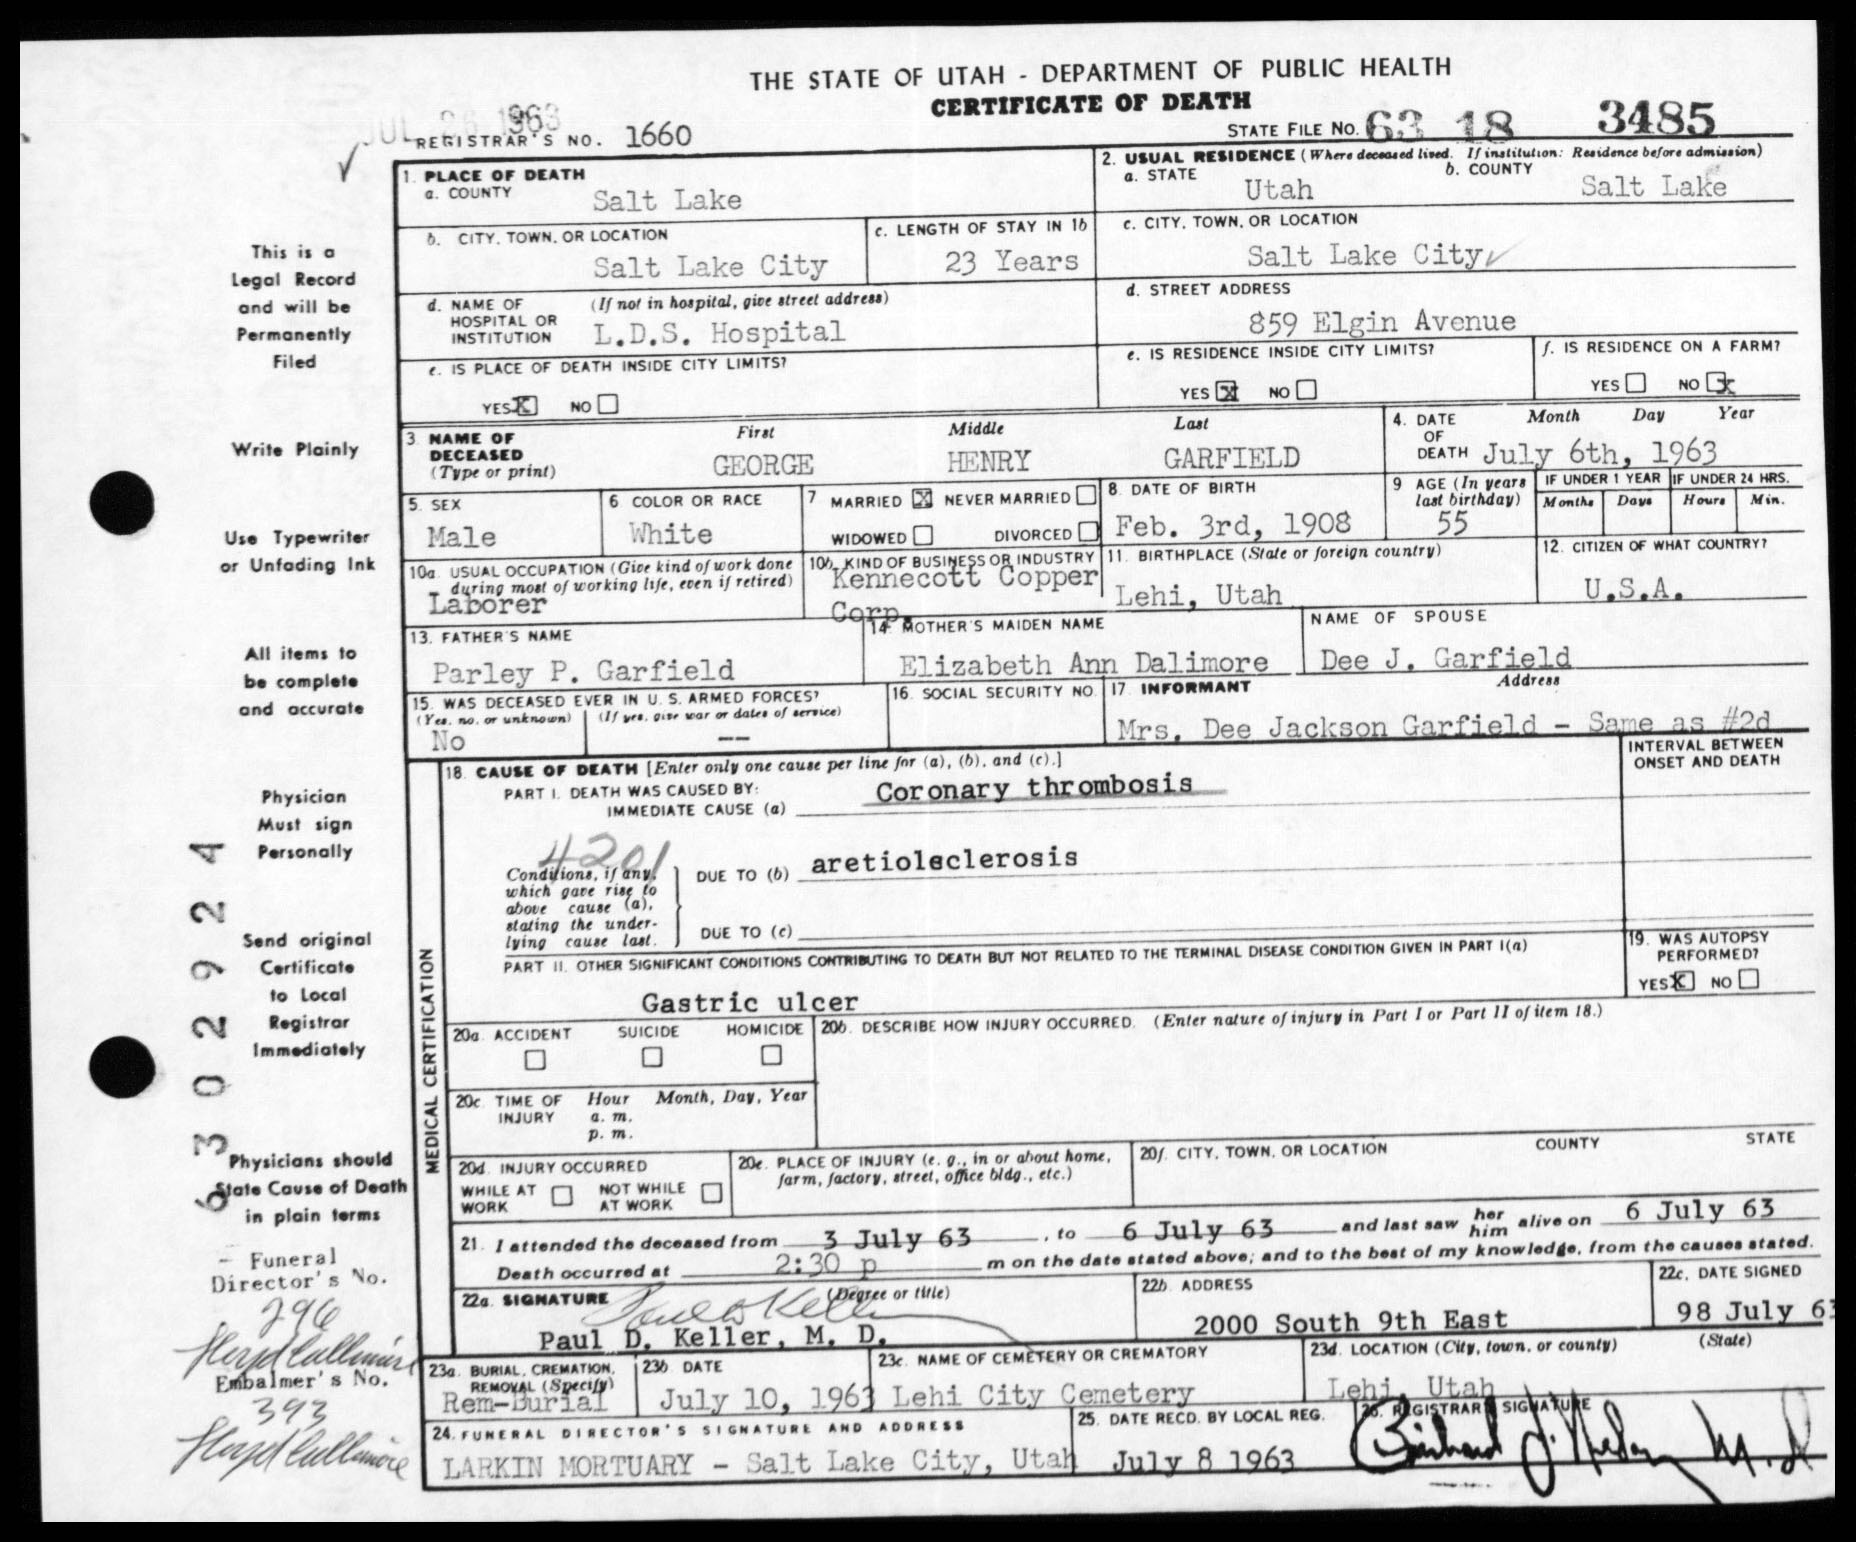 THE STATE OF UTAH - DEPARTMENT OF PUBLIC HEALTH
CERTIFICATE OF DEATH
JUL 26 1963
REGISTRAR'S NO. 1660
STATE FILE NO. 63 18 3485
1. PLACE OF DEATH
a. COUNTY Salt Lake
2. USUAL RESIDENCE (Where deceased lived. If institution: Residence before admission)
a. STATE Utah b. COUNTY Salt Lake
b. CITY, TOWN, OR LOCATION Salt Lake City
c. LENGTH OF STAY IN 1b 23 Years
c. CITY, TOWN, OR LOCATION Salt Lake City
d. NAME OF HOSPITAL OR INSTITUTION (If not in hospital, give street address) L.D.S. Hospital
d. STREET ADDRESS 859 Elgin Avenue
e. IS PLACE OF DEATH INSIDE CITY LIMITS? YES X NO
e. IS RESIDENCE INSIDE CITY LIMITS? YES X NO
f. IS RESIDENCE ON A FARM? YES NO X
3. NAME OF DECEASED (Type or print)
First Middle Last
GEORGE HENRY GARFIELD
4. DATE OF DEATH Month Day Year
July 6th, 1963
5. SEX Male
6 COLOR OR RACE White
7 MARRIED X NEVER MARRIED
WIDOWED DIVORCED
8. DATE OF BIRTH Feb. 3rd, 1908
9 AGE (In years last birthday) 55
IF UNDER 1 YEAR Months Days
IF UNDER 24 HRS. Hours Min.
10a. USUAL OCCUPATION (Give kind of work done during most of working life, even if retired) Laborer
10b. KIND OF BUSINESS OR INDUSTRY Kennecott Copper Corp.
11. BIRTHPLACE (State or foreign country) Lehi, Utah
12. CITIZEN OF WHAT COUNTRY? U.S.A.
13. FATHER'S NAME Parley P. Garfield
14. MOTHER'S MAIDEN NAME Elizabeth Ann Dalimore
NAME OF SPOUSE Dee J. Garfield
15. WAS DECEASED EVER IN U. S. ARMED FORCES?
(Yes, no, or unknown) (If yes, give war or dates of service)
No --
16. SOCIAL SECURITY NO.
17. INFORMANT Address
Mrs. Dee Jackson Garfield - Same as #2d
MEDICAL CERTIFICATION
18. CAUSE OF DEATH [Enter only one cause per line for (a), (b), and (c).]
INTERVAL BETWEEN ONSET AND DEATH
PART I. DEATH WAS CAUSED BY:
IMMEDIATE CAUSE (a) Coronary thrombosis
4201
Conditions, if any, which gave rise to above cause (a), stating the underlying cause last.
DUE TO (b) aretiolsclerosis
DUE TO (c)
PART II. OTHER SIGNIFICANT CONDITIONS CONTRIBUTING TO DEATH BUT NOT RELATED TO THE TERMINAL DISEASE CONDITION GIVEN IN PART I(a)
Gastric ulcer
19. WAS AUTOPSY PERFORMED? YES X NO
20a. ACCIDENT SUICIDE HOMICIDE
20b. DESCRIBE HOW INJURY OCCURRED. (Enter nature of injury in Part I or Part II of item 18.)
20c. TIME OF INJURY Hour a. m. p. m. Month, Day, Year
20d. INJURY OCCURRED
WHILE AT WORK NOT WHILE AT WORK
20e. PLACE OF INJURY (e. g., in or about home, farm, factory, street, office bldg., etc.)
20f. CITY, TOWN, OR LOCATION COUNTY STATE
21. I attended the deceased from 3 July 63, to 6 July 63 and last saw her him alive on 6 July 63
Death occurred at 2:30 p m on the date stated above; and to the best of my knowledge, from the causes stated.
22a. SIGNATURE (Degree or title)
Paul D Keller
Paul D. Keller, M. D.
22b. ADDRESS 2000 South 9th East
22c. DATE SIGNED 98 July 63
23a. BURIAL, CREMATION, REMOVAL (Specify) Rem-Burial
23b. DATE July 10, 1963
23c. NAME OF CEMETERY OR CREMATORY Lehi City Cemetery
23d. LOCATION (City, town, or county) (State) Lehi, Utah
24. FUNERAL DIRECTOR'S SIGNATURE AND ADDRESS
LARKIN MORTUARY - Salt Lake City, Utah
25. DATE RECD. BY LOCAL REG. July 8 1963
26. REGISTRAR'S SIGNATURE
M.D
This is a
Legal Record
and will be
Permanently
Filed
Write Plainly
Use Typewriter
or Unfading Ink
All items to
be complete
and accurate
Physician
Must sign
Personally
Send original
Certificate
to Local
Registrar
Immediately
Physicians should
State Cause of Death
in plain terms
6302924
Funeral
Director's No.
296
Floyd Cullimore
Embalmer's No.
393
Floyd Cullimore